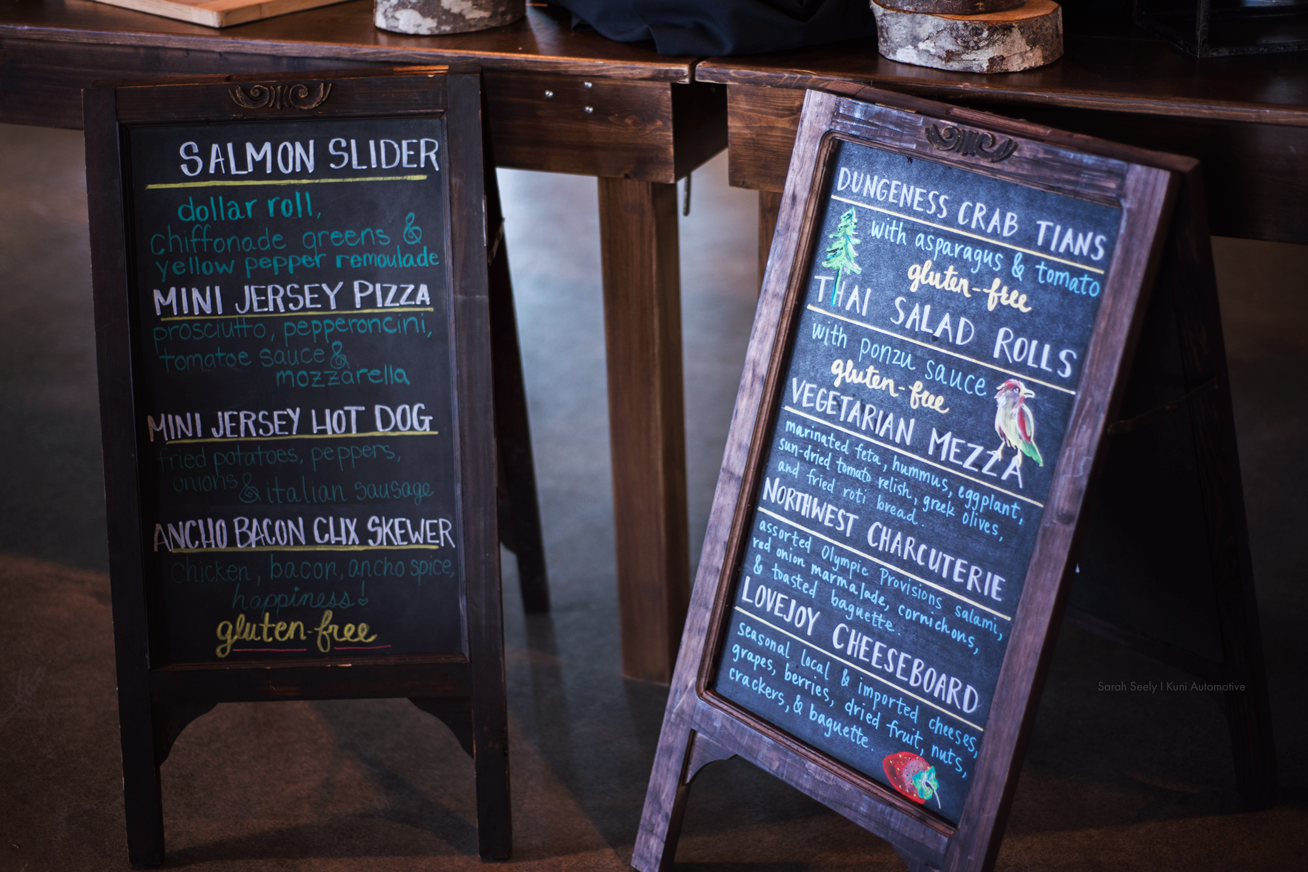 SALMON SLIDER
dollar roll,
chiffonade greens &
yellow pepper remoulade
MINI JERSEY PIZZA
prosciutto, pepperoncini,
tomatoe sauce &
mozzarella
MINI JERSEY HOT DOG
fried potatoes, peppers,
onions & italian sausage
ANCHO BACON CHX SKEWER
chicken, bacon, ancho spice,
happiness!
gluten-free
DUNGENESS CRAB TIANS
with asparagus & tomato
gluten-free
THAI SALAD ROLLS
with ponzu sauce
gluten-free
VEGETARIAN MEZZA
marinated feta, hummus, eggplant,
sun-dried tomato relish, greek olives,
and fried roti bread.
NORTHWEST CHARCUTERIE
assorted Olympic Provisions salami,
red onion marmalade, cornichons,
& toasted baguette.
LOVEJOY CHEESEBOARD
seasonal local & imported cheeses,
grapes, berries, dried fruit, nuts,
crackers, & baguette.
Sarah Seely | Kuni Automotive